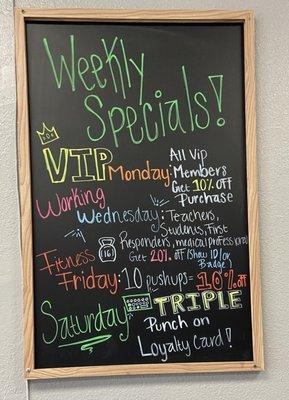 Weekly
Specials!
VIP Monday: All Vip
Members
Get 10% off
Purchase
Working
Wednesday: Teachers,
Students, First
Responders, medical professional
Get 20% off (Show ID/or
Badge)
16
Fitness
Friday: 10 pushups = 10% off
Saturday TRIPLE
Punch on
Loyalty Card!